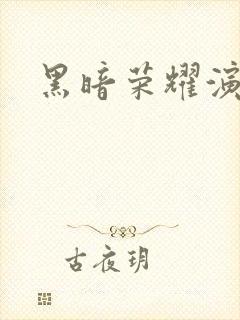 黑暗荣耀演
古夜玥